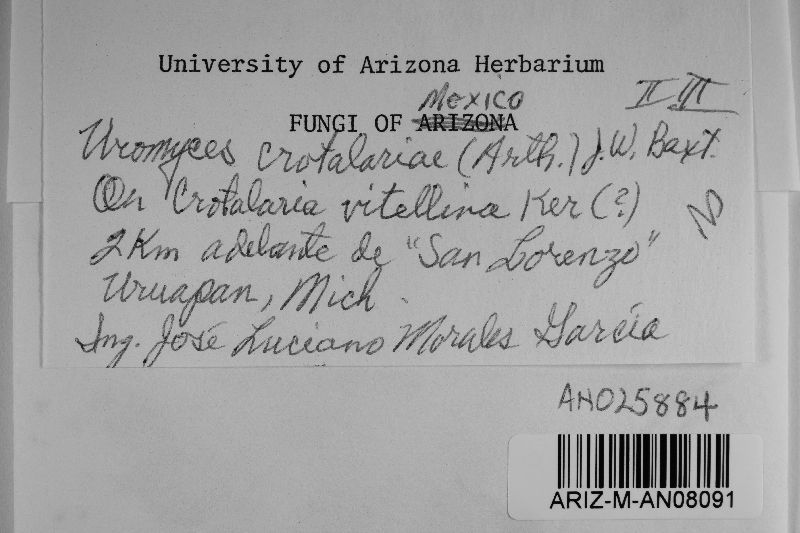 University of Arizona Herbarium
Mexico
II III
FUNGI OF ARIZONA
Uromyces crotalariae (Arth.) J.W. Baxt.
On Crotalaria vitellina Ker (?)
2 Km adelante de "San Lorenzo"
Uruapan, Mich.
Ing. José Luciano Morales García
AN025884
ARIZ-M-AN08091